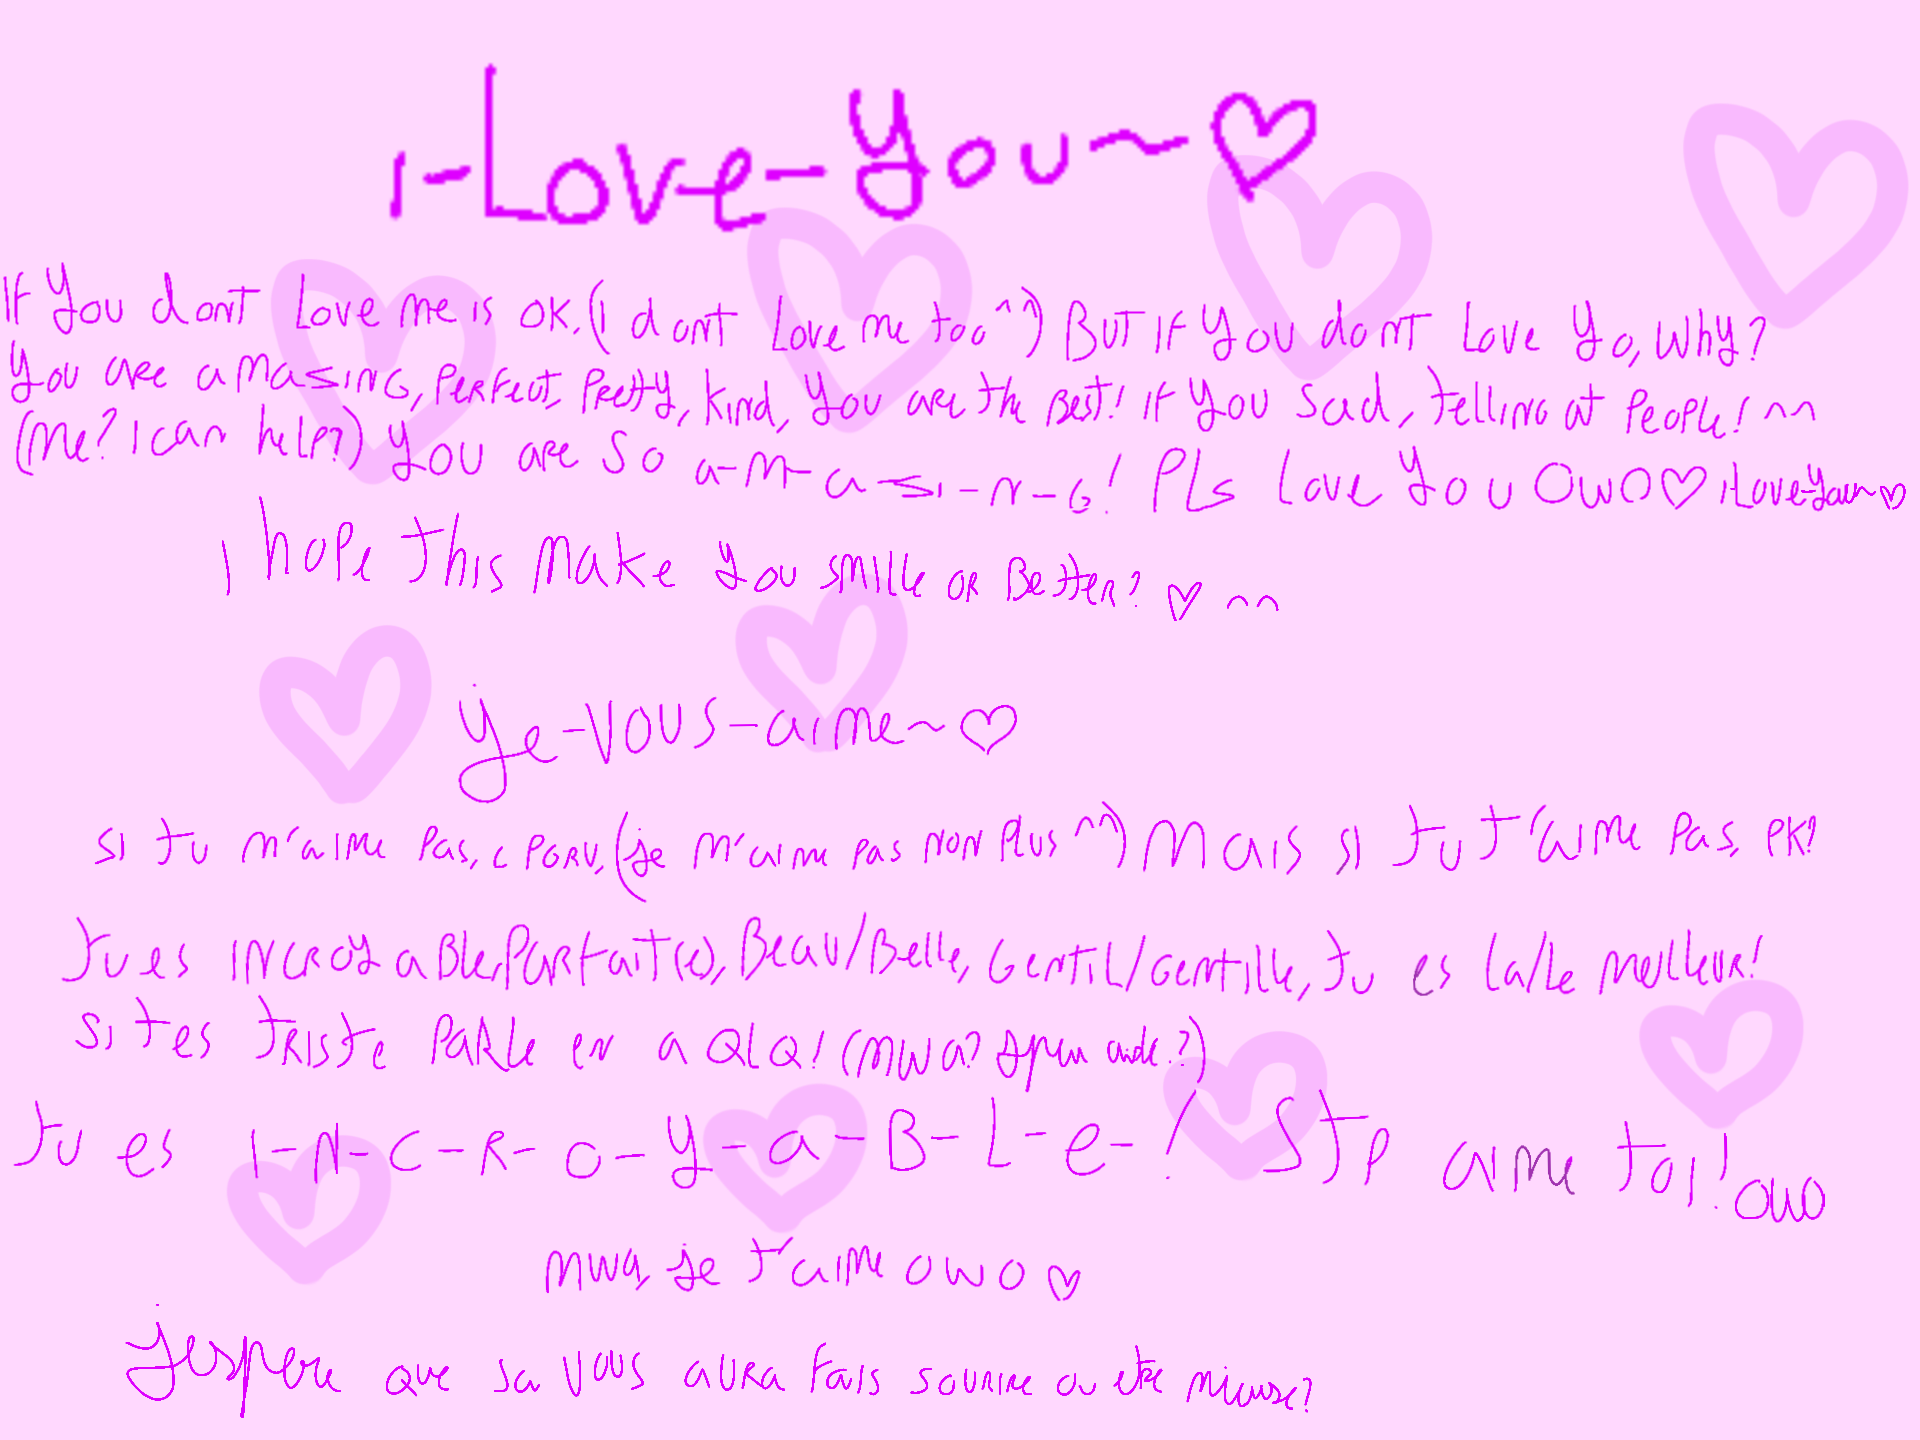 I-Love-You~♡
If You dont Love me is OK. (I dont Love me too ^^) But if You dont Love Yo, Why?
You are amasing, Perfect, Pretty, Kind, You are the Best! If You Sad, telling at People! ^^
(Me? I can help?) You are so a-m-a-si-n-g! Pls Love You OwO♡ I-Love-You~♡
I hope this make you smille or Better? ♡ ^^
je-vous-aime~♡
si tu m'aime pas, c pGRV, (je m'aime pas non plus ^^) Mais si tu t'aime pas, PK?
Tu es incroyable, Parfait(e), Beau/Belle, Gentil/Gentille, tu es la/le meilleur!
si tes triste parle en a QLQ! (mwa? J'peu aide?)
Tu es I-N-C-R-O-Y-a-B-L-e-! STP aime toi! OwO
mwa, je t'aime OwO♡
j'espere que sa vous aura fais sourire ou etre mieuse?